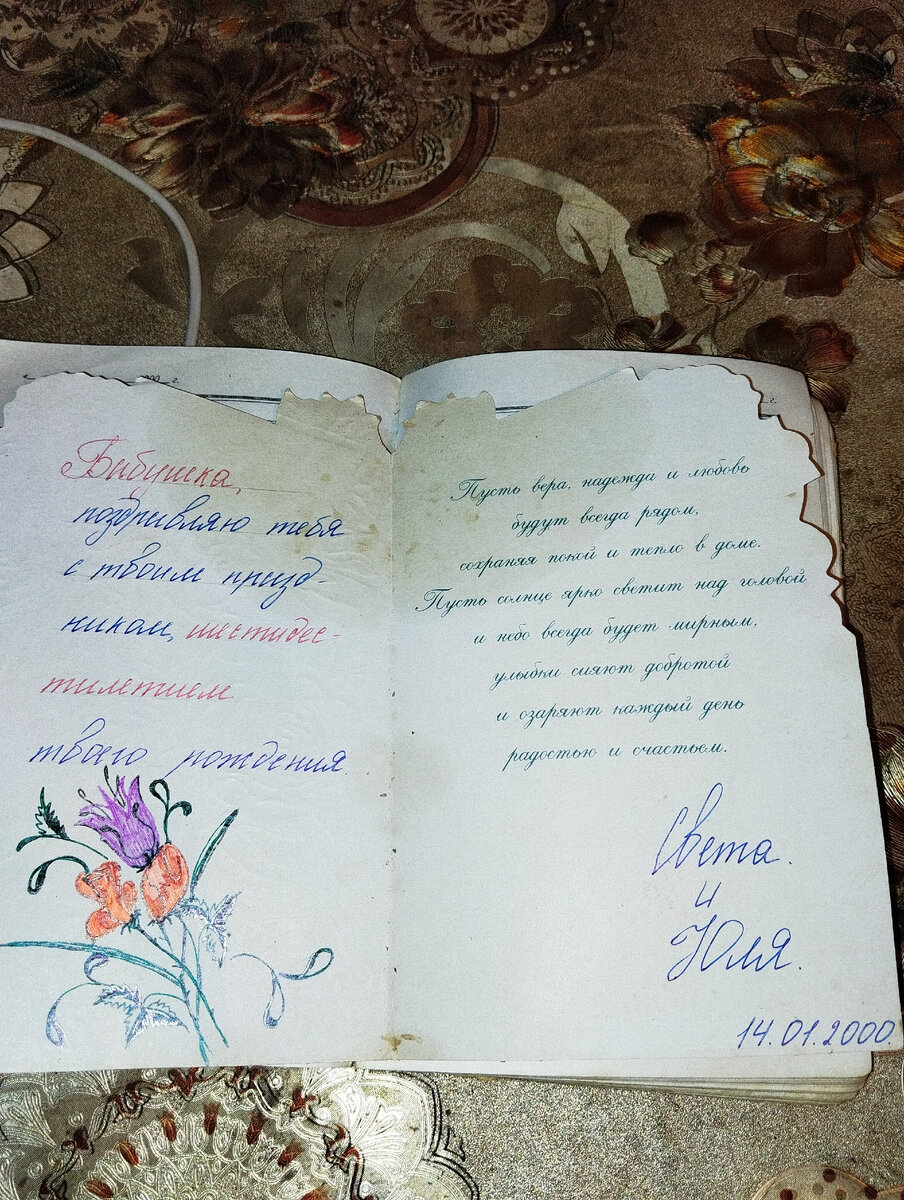 г.
г.
Бабушка,
поздравляю тебя
с твоим празд-
ником, шестидес-
тилетием
твоего рождения.
Пусть вера, надежда и любовь
будут всегда рядом,
сохраняя покой и тепло в доме.
Пусть солнце ярко светит над головой
и небо всегда будет мирным,
улыбки сияют добротой
и озаряют каждый день
радостью и счастьем.
Света.
и
Юля.
14.01.2000.